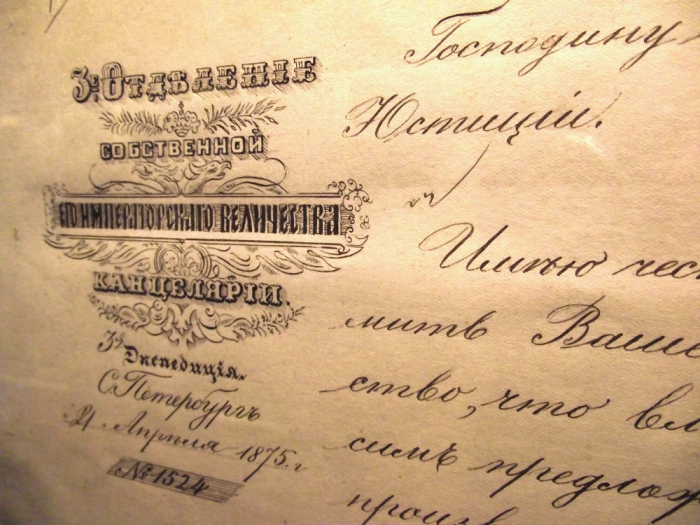 3е Отдѣленіе
Собственной
Его Императорскаго Величества
Канцеляріи.
3я Экспедиція.
С. Петербургъ
21 Апрѣля 1875 г
№ 1524
Господину
Юстиціи.
Имѣю чес
мить Ваше
ство, что вл
симъ предлож
произв